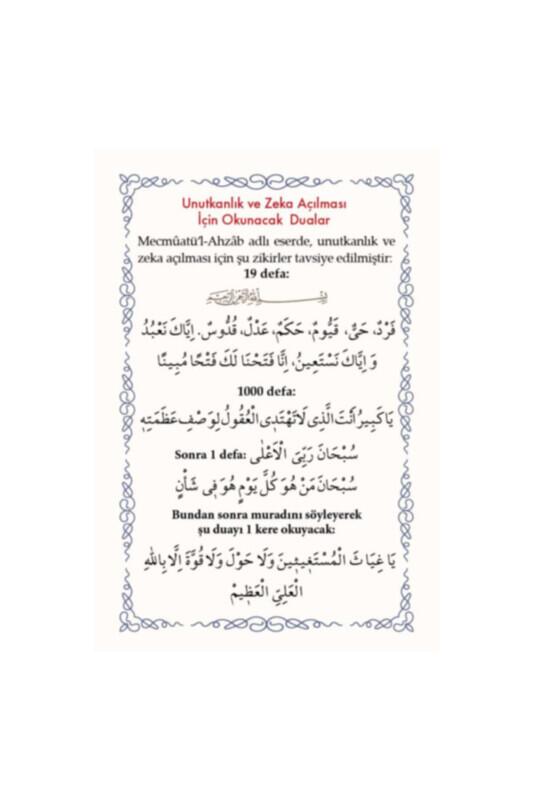 Unutkanlık ve Zeka Açılması
İçin Okunacak Dualar
Mecmûatü'l-Ahzâb adlı eserde, unutkanlık ve
zeka açılması için şu zikirler tavsiye edilmiştir:
19 defa:
بِسْمِ اللهِ الرَّحْمٰنِ الرَّحِيمِ
فَرْدٌ، حَىٌّ، قَيُّومٌ، حَكَمٌ، عَدْلٌ، قُدُّوسٌ. اِيَّاكَ نَعْبُدُ
وَ اِيَّاكَ نَسْتَعِينُ، اِنَّا فَتَحْنَا لَكَ فَتْحًا مُبِينًا
1000 defa:
يَا كَبِيرُ اَنْتَ الَّذِى لَا تَهْتَدِى الْعُقُولُ لِوَصْفِ عَظَمَتِهِ
Sonra 1 defa: سُبْحَانَ رَبِّىَ الْاَعْلٰى
سُبْحَانَ مَنْ هُوَ كُلَّ يَوْمٍ هُوَ فِى شَأْنٍ
Bundan sonra muradını söyleyerek
şu duayı 1 kere okuyacak:
يَا غِيَاثَ الْمُسْتَغِيثِينَ وَلَا حَوْلَ وَلَا قُوَّةَ اِلَّا بِاللهِ
الْعَلِىِّ الْعَظِيمْ